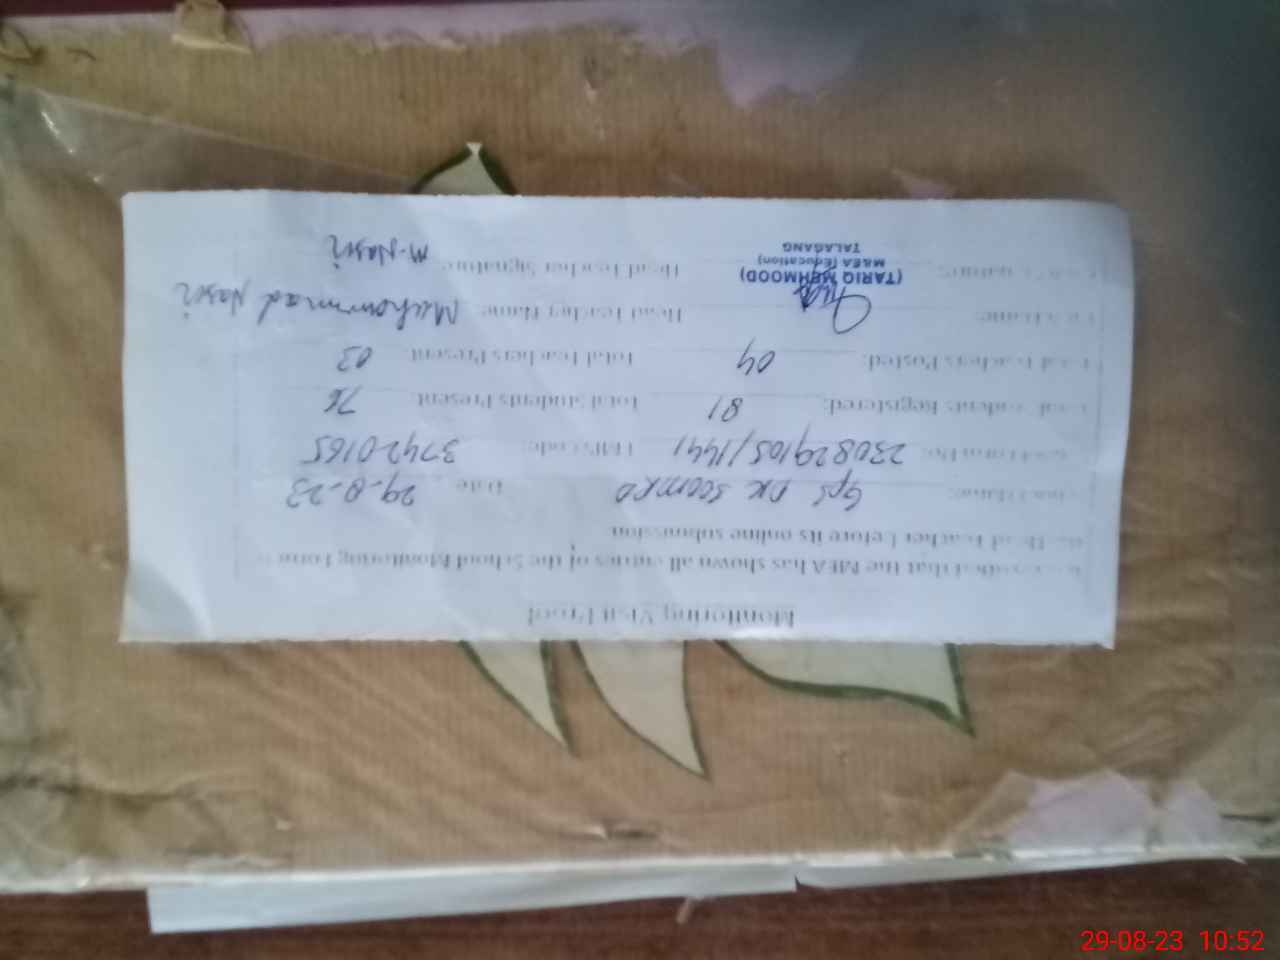 Monitoring Visit Proof
that the MEA has shown all entries of the School Monitoring Form
Head Teacher before its online submission.
Name: GPS DK SOOMRO Date 29-8-23
230829105/1441 EMIS Code: 37420165
Total Students Registered: 81 Total Students Present: 76
Total Teachers Posted: 04 Total Teachers Present: 03
Name: Head Teacher Name: Muhammad Nasir
(TARIQ MEHMOOD)
M&EA (Education)
TALAGANG
Head Teacher Signature: M-Nasir
29-08-23 10:52